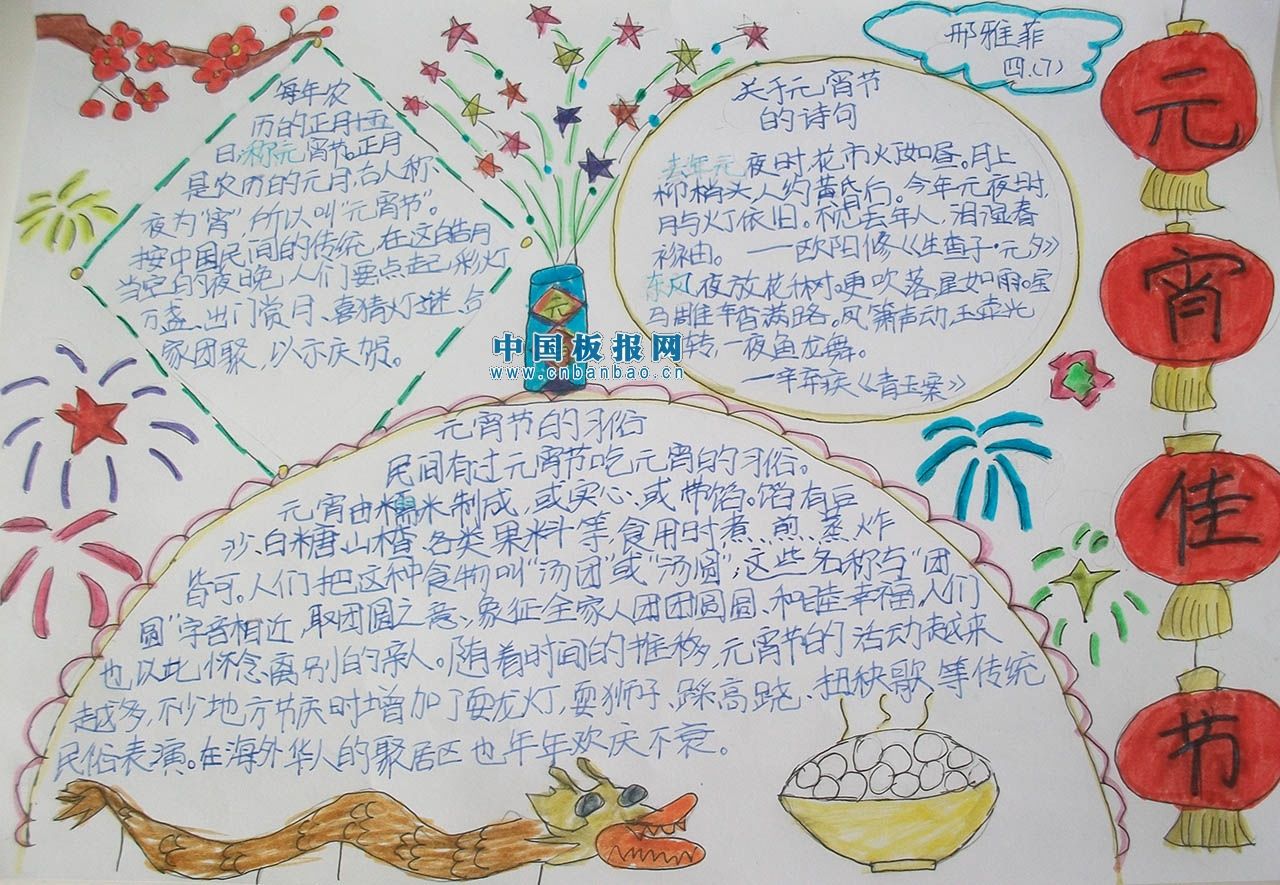 每年农
历的正月十五
日,称元宵节。正月
是农历的元月,古人称
夜为“宵”,所以叫“元宵节”。
按中国民间的传统,在这皓月
当空的夜晚,人们要点起彩灯
万盏、出门赏月、喜猜灯谜、合
家团聚,以示庆贺。
关于元宵节
的诗句
去年元夜时,花市灯如昼。月上
柳梢头,人约黄昏后。今年元夜时,
月与灯依旧。不见去年人,泪湿春
衫袖。——欧阳修《生查子·元夕》
东风夜放花千树。更吹落,星如雨。宝
马雕车香满路。凤箫声动,玉壶光
转,一夜鱼龙舞。
—辛弃疾《青玉案》
邢雅菲
四.(7)
元
宵
佳
节
元
中国板报网
www.cnbanbao.cn
元宵节的习俗
民间有过元宵节吃元宵的习俗。
元宵由糯米制成,或实心,或带馅。馅有豆
沙、白糖、山楂、各类果料等,食用时煮、煎、蒸、炸
皆可。人们把这种食物叫“汤团”或“汤圆”,这些名称与“团
圆”字音相近,取团圆之意,象征全家人团团圆圆、和睦幸福,人们
也以此怀念离别的亲人。随着时间的推移,元宵节的活动越来
越多,不少地方节庆时增加了耍龙灯,耍狮子、踩高跷、扭秧歌等传统
民俗表演。在海外华人的聚居区也年年欢庆不衰。